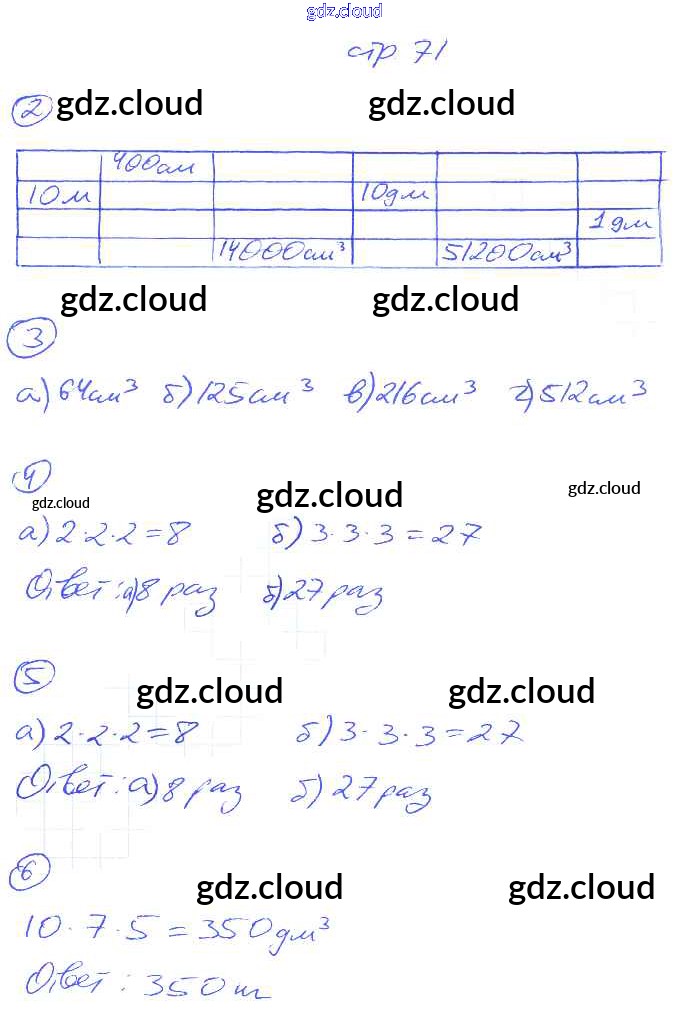 gdz.cloud
стр 71
2 gdz.cloud gdz.cloud
400см
10м 10дм
1дм
14000см³ 51200см³
gdz.cloud gdz.cloud
3
а) 64см³ б) 125см³ в) 216см³ г) 512см³
4
gdz.cloud gdz.cloud gdz.cloud
а) 2·2·2=8 б) 3·3·3=27
Ответ: а) 8 раз б) 27 раз
5
gdz.cloud gdz.cloud
а) 2·2·2=8 б) 3·3·3=27
Ответ: а) 8 раз б) 27 раз
6
gdz.cloud gdz.cloud
10·7·5=350дм³
Ответ: 350